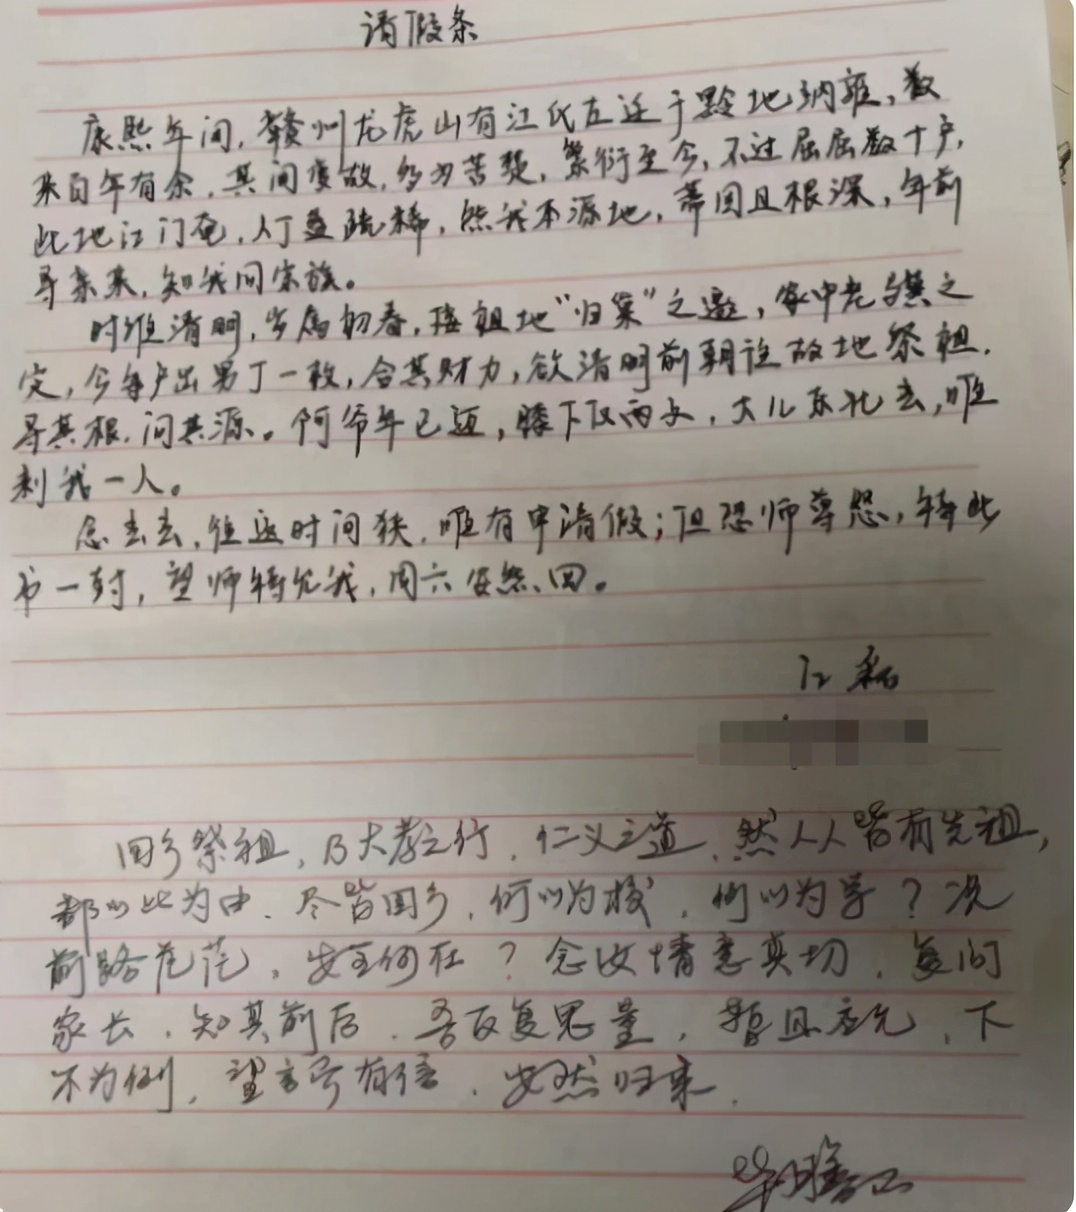 请假条
康熙年间,赣州龙虎山有江氏左迁于黔地纳雍,数
来百年有余,其间变故,多为苦楚,繁衍至今,不过屈屈数十户,
此地江门奄,人丁盖疏稀,然我本源地,蒂固且根深,年前
寻亲来,知我同宗族。
时维清明,岁属初春,接祖地“归巢”之邀,家中老与族之
定,今每户出男丁一枚,合其财力,欲清明前朝往故地祭祖,
寻其根,问其源。阿爷年已迈,膝下仅两子,大儿东北去,唯
剩我一人。
念去去,往返时间狭,唯有申请假;但恐师尊怒,特此
书一封,望师特允我,周六安然回。
江
回乡祭祖,乃大孝之行,仁义之道,然人人皆有先祖,
都以此为由,尽皆回乡,何以为校,何以为学?况
前路茫茫,安全何在?念汝情意真切,复问
家长,知其前后,吾反复思量,暂且应允,下
不为例,望言而有信,安然归来.